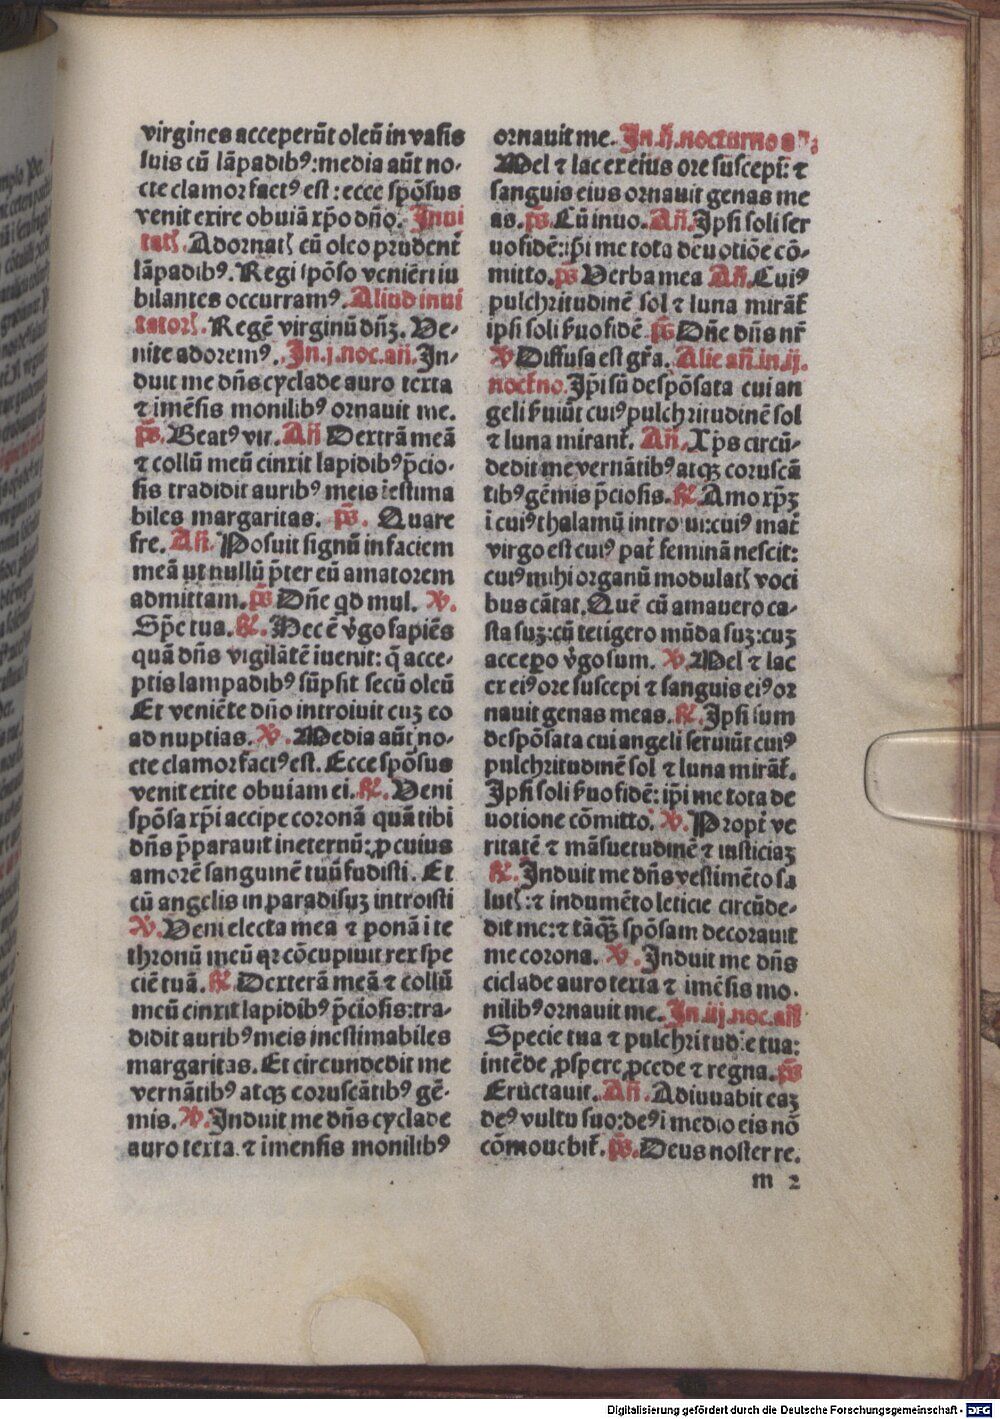 virgines acceperūt oleū in vasis
suis cū lāpadibꝰ: media aūt no-
cte clamor factꝰ est: ecce spōsus
venit exire obuiā xp̄o dn̄o. Inui
tatꝭ. Adornatꝭ cū oleo prudent̄
lāpadibꝰ. Regi spōso veniēti iu
bilantes occurramꝰ. Aliud inui
tatorꝭ. Regē virginū dn̄ꝫ. Ve-
nite adoremꝰ. In .j. noc. an̄. In-
duit me dn̄s cyclade auro texta
⁊ imēsis monilibꝰ ornauit me.
p̄s. Beatꝰ vir. An̄ Dextrā meā
⁊ collū meū cinxit lapidibꝰ p̄cio-
sis tradidit auribꝰ meis iestima
biles margaritas. p̄s. Quare
fre. An̄. Posuit signū in faciem
meā ut nullū p̄ter eū amatorem
admittam. p̄s Dn̄e qd mul. ℣.
Spē tua. ℟. Hec ē v̓go sapiēs
quā dn̄s vigilātē iuenit: q̄ acce-
ptis lampadibꝰ sūpsit secū oleū
Et veniēte dn̄o introiuit cuꝫ eo
ad nuptias. ℣. Media aūt no-
cte clamor factꝰ est. Ecce spōsus
venit exite obuiam ei. ℟. Veni
spōsa xp̄i accipe coronā quā tibi
dn̄s p̄parauit in eternū: ꝓ cuius
amorē sanguinē tuū fudisti. Et
cū angelis in paradisuꝫ introisti
℣. Veni electa mea ⁊ ponā i te
thronū meū qꝛ cōcupiuit rex spe
ciē tuā. ℟. Dexterā meā ⁊ collū
meū cinxit lapidibꝰ p̄ciosis: tra-
didit auribꝰ meis inestimabiles
margaritas. Et circundedit me
vernātibꝰ atqꝫ coruscātibꝰ gē-
mis. ℣. Induit me dn̄s cyclade
auro texta ⁊ imensis monilibꝰ
ornauit me. In .ij. nocturno
Mel ⁊ lac ex eius ore suscepi: ⁊
sanguis eius ornauit genas me
as. p̄s. Cū inuo. An̄. Ipsi soli ser
uo fidē: ip̄i me tota deuotiōe cō-
mitto. p̄s Verba mea An̄. Cuiꝰ
pulchritudinē sol ⁊ luna mirāt̄
ipsi soli s̄uo fidē p̄s Dn̄e dn̄s nr̄
℣ Diffusa est gr̄a. Alie an̄. in .ij.
noct̄no. Ip̄i sū despōsata cui an
geli s̄uiūt cuiꝰ pulchritudinē sol
⁊ luna mirant̄. An̄. Xp̄s circū-
dedit me vernātibꝰ atqꝫ coruscā
tibꝰ gēmis p̄ciosis. ℟. Amo xp̄ꝫ
i cuiꝰ thalamū introiui: cuiꝰ mat̄
virgo est cuiꝰ pat̄ feminā nescit:
cuiꝰ mihi organū modulatꝭ voci
bus cātat. Quē cū amauero ca-
sta suꝫ: cū tetigero mūda suꝫ: cuꝫ
accepo v̓go sum. ℣. Mel ⁊ lac
ex eiꝰ ore suscepi ⁊ sanguis eiꝰ or
nauit genas meas. ℟. Ipsi sum
despōsata cui angeli seruiūt cuiꝰ
pulchritudinē sol ⁊ luna mirāt̄.
Ipsi soli s̄uo fidē: ip̄i me tota de
uotione cōmitto. ℣. Propt̄ ve
ritatē ⁊ māsuetudinē ⁊ iusticiaꝫ
℟. Induit me dn̄s vestimēto sa
lutꝭ: ⁊ indumēto leticie circūde-
dit me: ⁊ tāqꝫ̄ spōsam decorauit
me corona. ℣. Induit me dn̄s
ciclade auro texta ⁊ imēsis mo-
nilibꝰ ornauit me. In .iij. noc. an̄
Specie tua ⁊ pulchritudie tua:
intēde ꝓspere ꝓcede ⁊ regna. p̄s
Eructauit. An̄. Adiuuabit eaꝫ
deꝰ vultu suo: deꝰ i medio eis nō
cōmouebit̄. p̄s. Deus noster re.
m 2
Digitalisierung gefördert durch die Deutsche Forschungsgemeinschaft - DFG